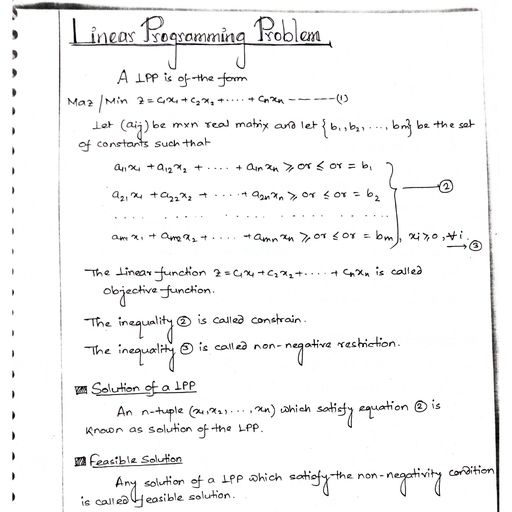 Linear Programming Problem
A LPP is of the form
Max / Min Z = c₁x₁ + c₂x₂ + .... + cₙxₙ ------(1)
Let (aij) be mxn real matrix and let {b₁, b₂, ..., bm} be the set
of constants such that
a₁₁x₁ + a₁₂x₂ + .... + a₁ₙxₙ ≥ or ≤ or = b₁
a₂₁x₁ + a₂₂x₂ + .... + a₂ₙxₙ ≥ or ≤ or = b₂ ②
. . . . . . . . . . . . . . . .
am₁x₁ + am₂x₂ + .... + amnxn ≥ or ≤ or = bm, xi ≥ 0, ∀ i
→ ③
The Linear function Z = c₁x₁ + c₂x₂ + .... + cₙxₙ is called
objective function.
The inequality ② is called constrain.
The inequality ③ is called non-negative restriction.
Solution of a LPP
An n-tuple (x₁, x₂, ..., xn) which satisfy equation ② is
known as solution of the LPP.
Feasible Solution
Any solution of a LPP which satisfy the non-negativity condition
is called feasible solution.